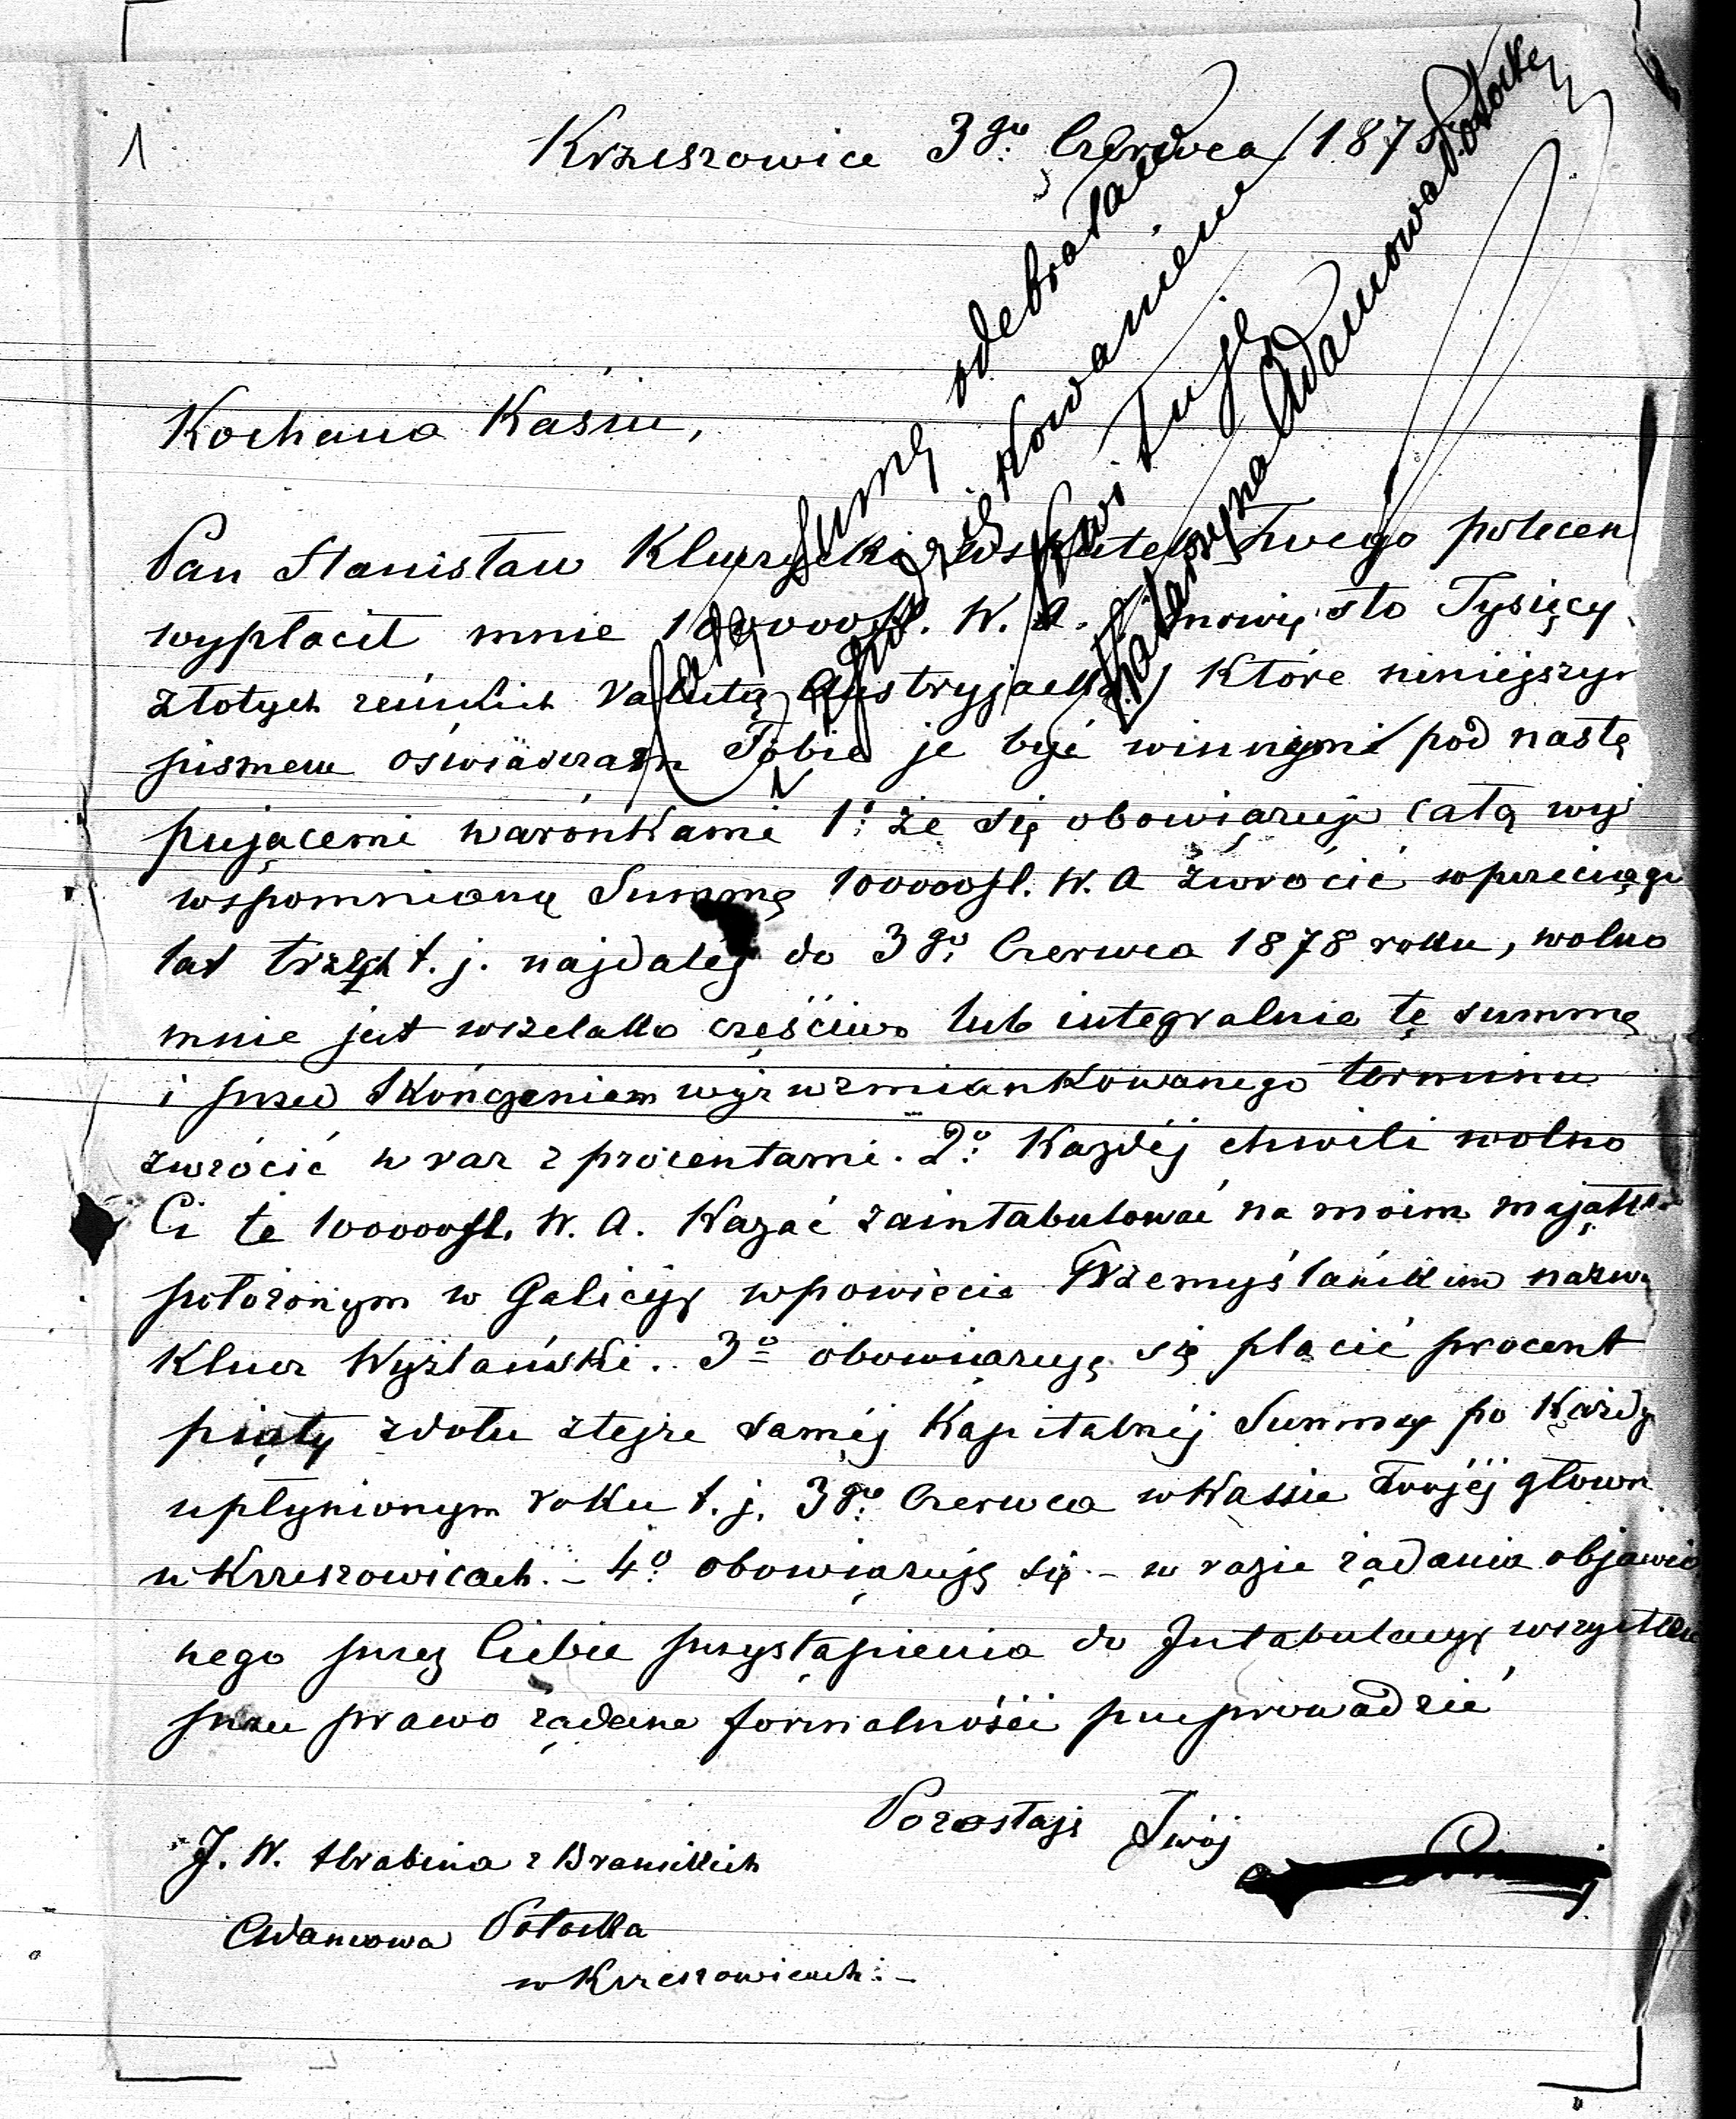 1
Krzeszowice 3go Czerwca 1875
Kochana Kasiu,
Pan Stanisław Kluczycki wskutek Twego polecen
wypłacił mnie 100000fl. W. A. mówię sto Tysięcy
złotych reńskich Valutą Austryjacką, które niniejszym
pismem oświadczam Tobie je być winnymi pod nastę
pującemi warónkami 1o że się obowiązuję całą wyż
wspomnioną Summę 100000fl. W. A zwrócić wprzeciągu
lat trzech t. j. najdaléj do 3go Czerwca 1878 roku, wolno
mnie jest wszelako częściwo lub integralnie tę summę
i przed skończeniem wyż wzmiankowanego terminu
zwrócić w raz z procentami. 2o Każdéj chwili wolno
Ci te 100000fl. W. A. Kazać zaintabulować na moim majątku
położonym w Galicyi wpowiecie Przemyślańskim nazwą
Klucz Wyżlański. 3o obowiązuję się płacić procent
piąty zdołu ztejże saméj Kapitalnéj Summy po każdy
upłynionym roku t. j. 3go Czerwca wKassie Twojéj główn
wKrzeszowicach. - 4o obowiązuję się - w razie żądania objawio
nego przez Ciebie przystąpienia do Intabulacyi wszystkie
przez prawo żądane formalnośći przeprowadzić
Pozostaję Twój
J. W. Hrabina z Branickich
Adamowa Potocka
w Krzeszowicach. -
Całą Sumę odebrałam
z podziękowaniem
Kwituję
Katarzyna Adamowa Potocka